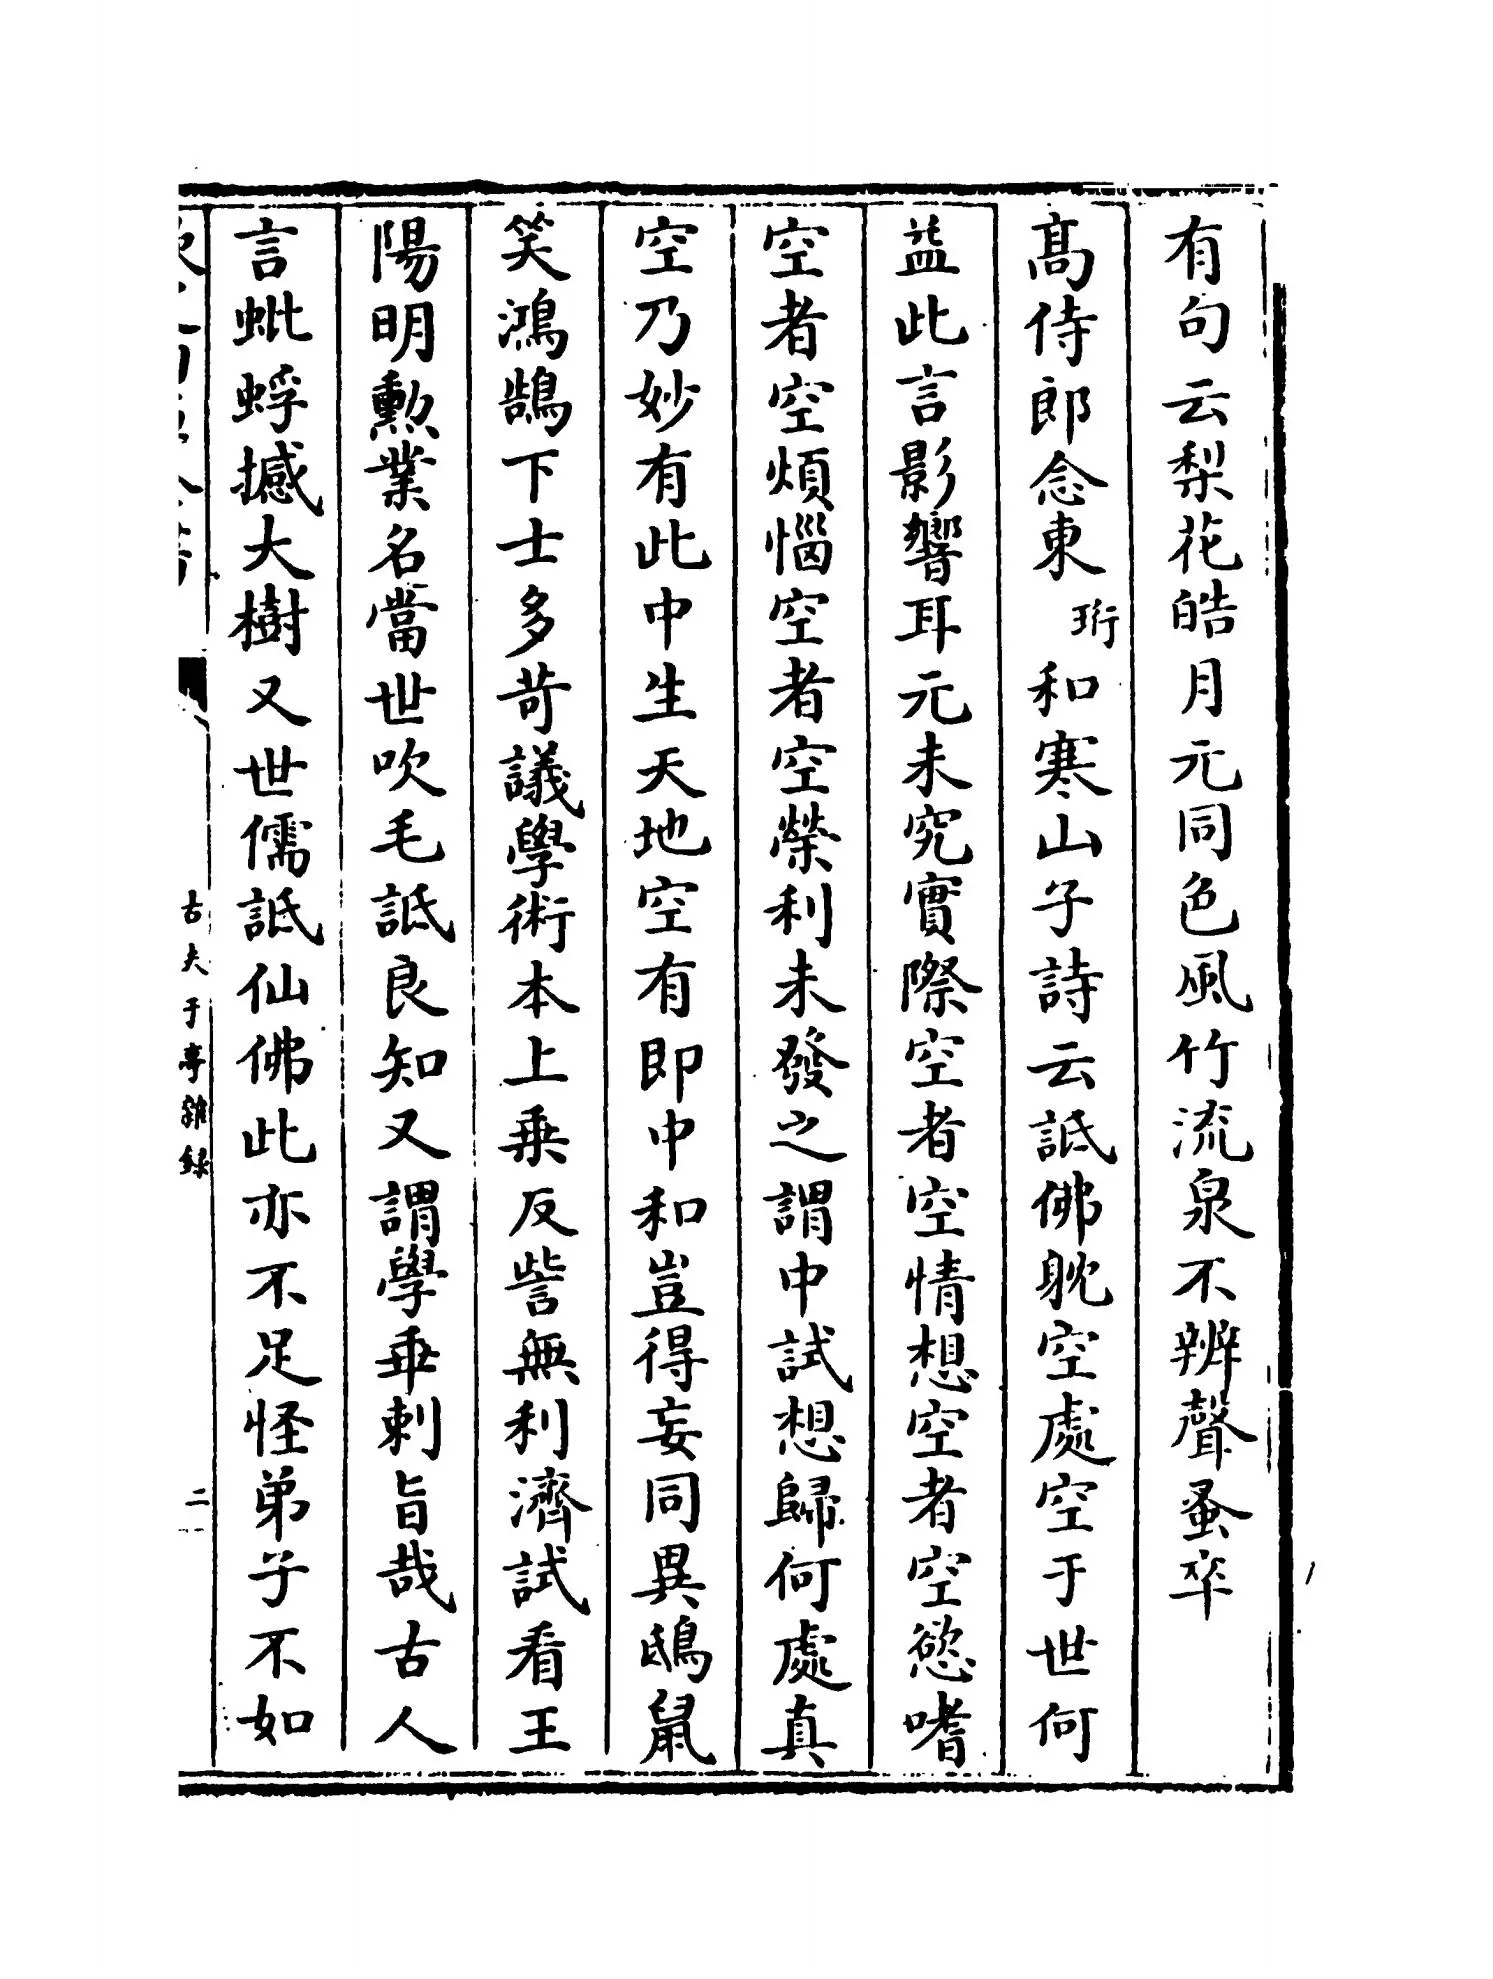 有句云梨花皓月元同色風竹流泉不辨聲蚤卒
髙侍郎念東珩和寒山子詩云詆佛躭空處空于世何
益此言影響耳元未究實際空者空情想空者空慾嗜
空者空煩惱空者空榮利未發之謂中試想歸何處真
空乃妙有此中生天地空有即中和豈得妄同異鴟鼠
笑鴻鵠下士多苛議學術本上乗反訾無利濟試看王
陽明勲業名當世吹毛詆良知又謂學乖刺旨哉古人
言蚍蜉撼大樹又世儒詆仙佛此亦不足怪弟子不如
古夫于亭雜録
二